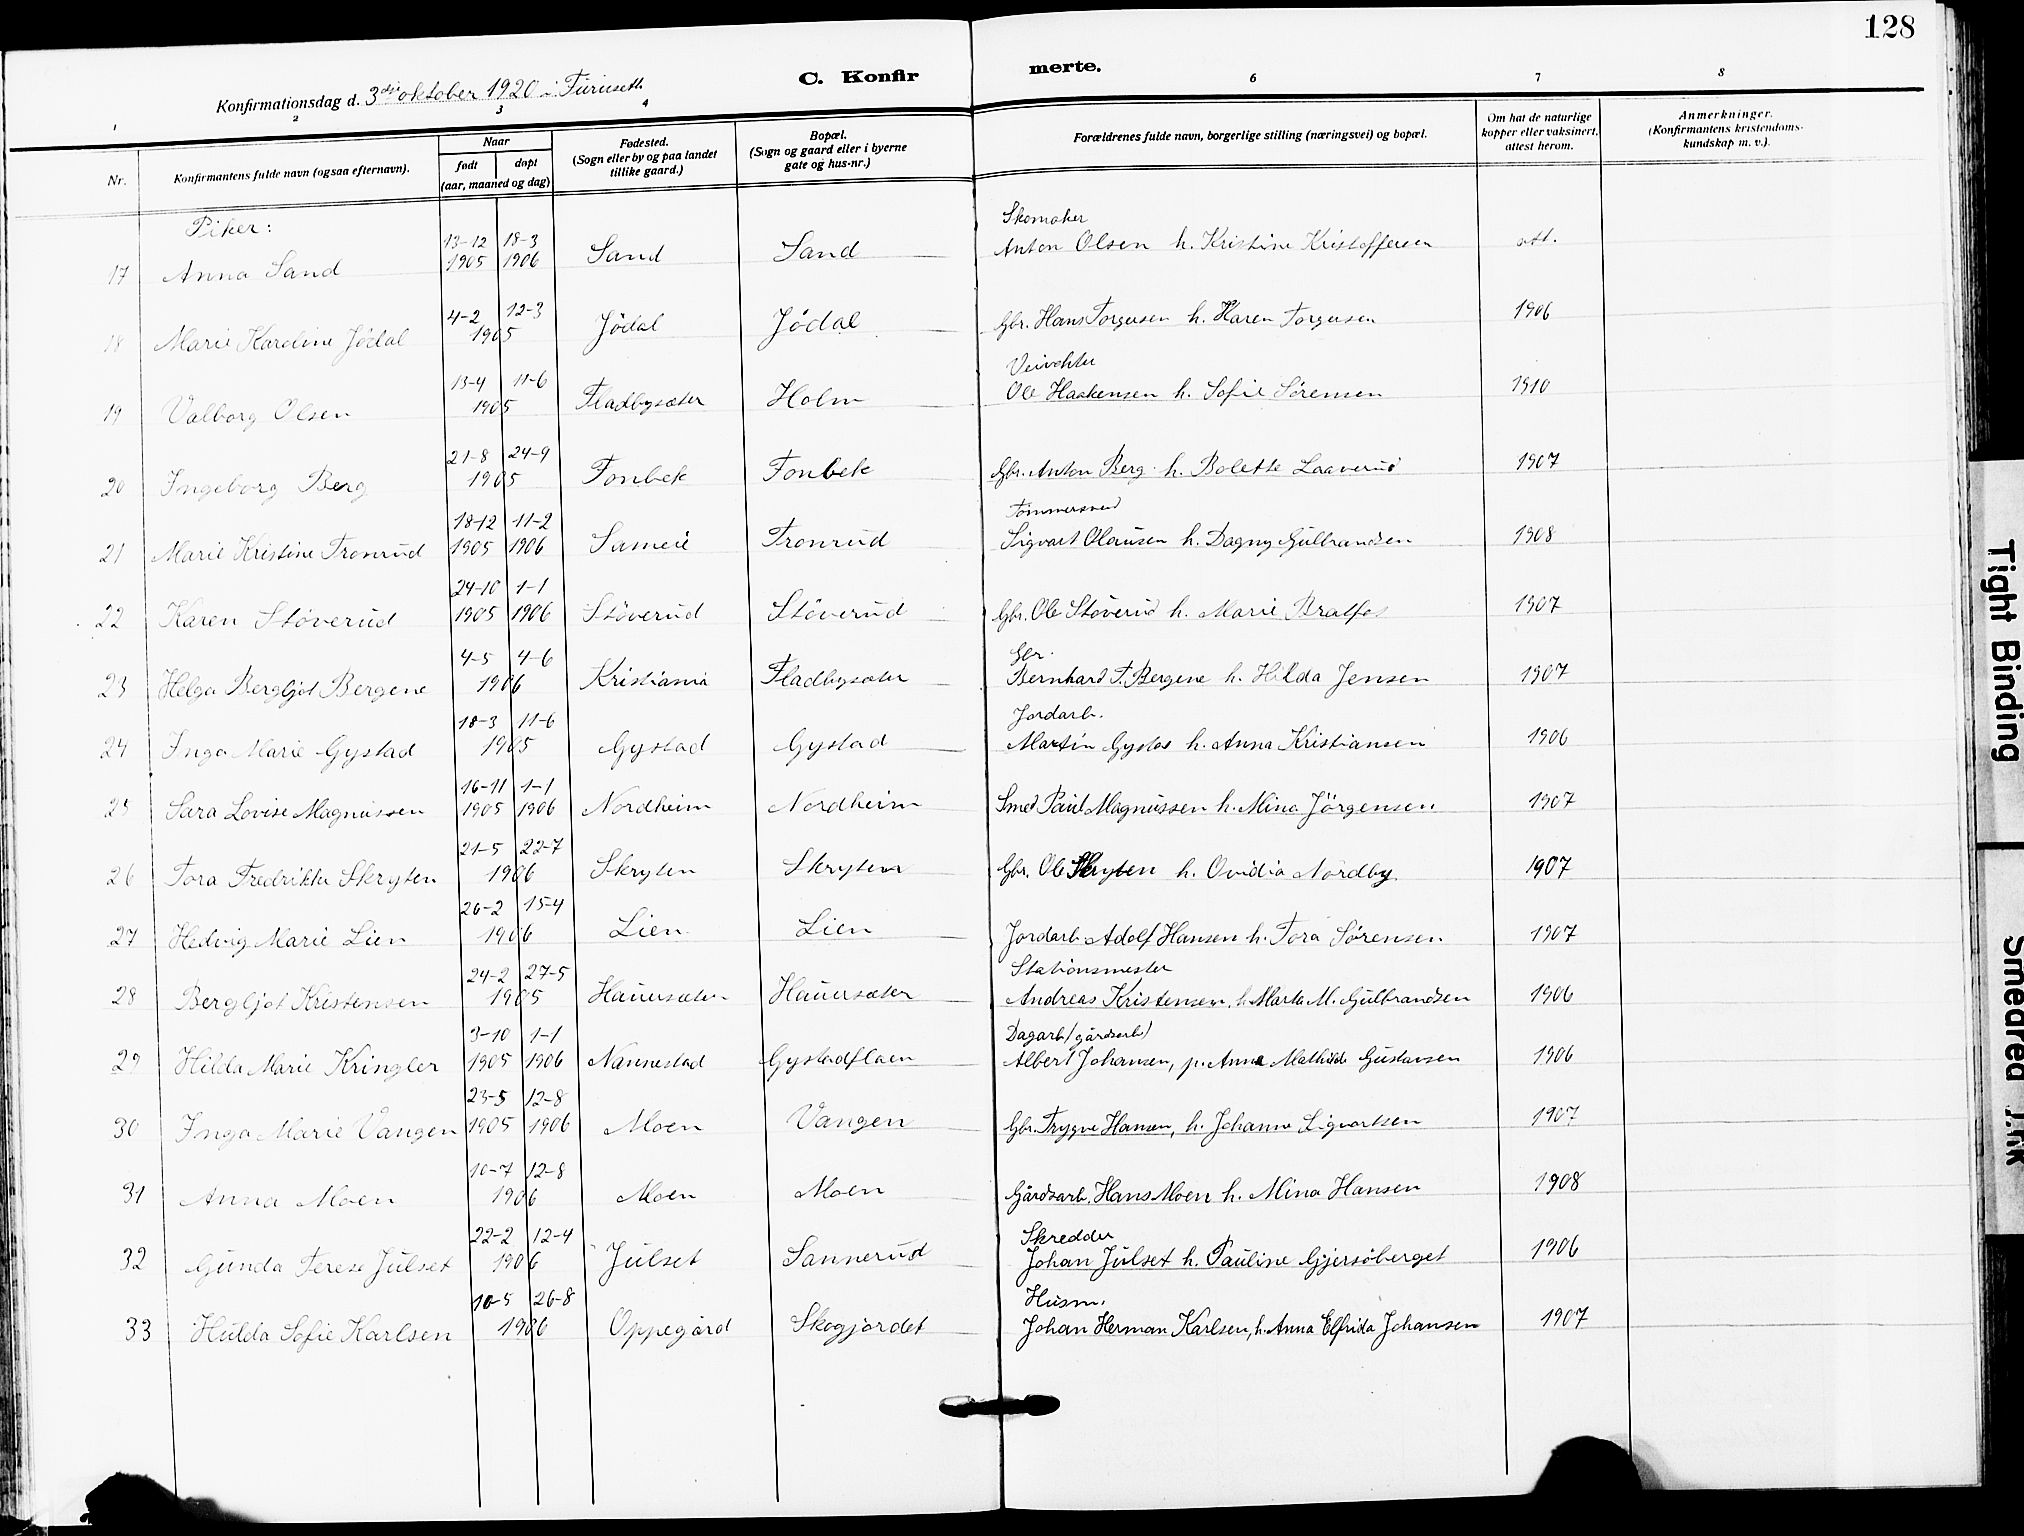 128
C. Konfirmerte.
Konfirmationsdag d. 3die oktober 1920 i Furuseth
1 2 3 4 6 7 8
Nr.
Konfirmantens fulde navn (ogsaa efternavn).
Naar
født døpt
(aar, maaned og dag)
Fødested.
(Sogn eller by og paa landet
tillike gaard.)
Bopæl.
(Sogn og gaard eller i byerne
gate og hus-nr.)
Forældrenes fulde navn, borgerlige stilling (næringsvei) og bopæl.
Om hat de naturlige
kopper eller vaksinert,
attest herom.
Anmerkninger.
(Konfirmantens kristendoms-
kundskap m. v.).
Piker:
17 Anna Sand 13-12 1905 18-3 1906 Sand Sand Skomaker Anton Olsen h. Kristine Kristoffersen att.
18 Marie Karoline Jödal 4-2 12-3 1905 Jödal Jödal Gbr. Hans Torgersen h. Karen Torgersen 1906
19 Valborg Olsen 13-4 11-6 1905 Fladbysæter Holm Veivokter Ole Haakensen h. Sofie Sörensen 1910
20 Ingeborg Berg 21-8 24-9 1905 Tonbek Tonbek Gbr. Anton Berg h. Bolette Laaverud 1907
21 Marie Kristine Tronrud 18-12 1905 11-2 1906 Sameie Tronrud Tømmersved Sigvart Olausen h. Dagny Gulbrandsen 1908
22 Karen Støverud 24-10 1905 1-1 1906 Støverud Støverud Gbr. Ole Støverud h. Marie Bratfos 1907
23 Helga Bergljot Bergene 4-5 4-6 1906 Kristiania Fladbysæter Gbr. Bernhard T. Bergene h. Hilda Jensen 1907
24 Inga Marie Gystad 18-3 11-6 1905 Gystad Gystad Jordarb. Martin Gystad h. Anna Kristiansen 1906
25 Sara Lovise Magnussen 16-11 1905 1-1 1906 Nordheim Nordheim Smed Paul Magnussen h. Mina Jörgensen 1907
26 Tora Fredrikke Skryten 21-5 22-7 1906 Skryten Skryten Gbr. Ole Skryten h. Ovidia Nordby 1907
27 Hedvig Marie Lien 26-2 15-4 1906 Lien Lien Jordarb. Adolf Hansen h. Tora Sørensen 1907
28 Bergljot Kristensen 24-2 27-5 1905 Hauersæter Hauersæter Stationsmester Andreas Kristensen, h. Marta M. Gulbrandsen 1906
29 Hilda Marie Kringler 3-10 1905 1-1 1906 Nannestad Gystadflaen Dagarb (gårdsarb) Albert Johansen, p. Anna Mathilde Gustavsen 1906
30 Inga Marie Vangen 23-5 1905 12-8 1906 Moen Vangen Gbr. Trygve Hansen, h. Johanne Sigvartsen 1907
31 Anna Moen 10-7 12-8 1906 Moen Moen Gårdsarb. Hans Moen h. Mina Hansen 1908
32 Gunda Terese Julset 22-2 12-4 1906 Julset Sannerud Skredder Johan Julset h. Pauline Gjersöberget 1906
33 Hulda Sofie Karlsen 10-5 26-8 1906 Oppegård Skogjordet Husm. Johan Herman Karlsen, h. Anna Elfrida Johansen 1907
Tight Binding
Smeared Ink